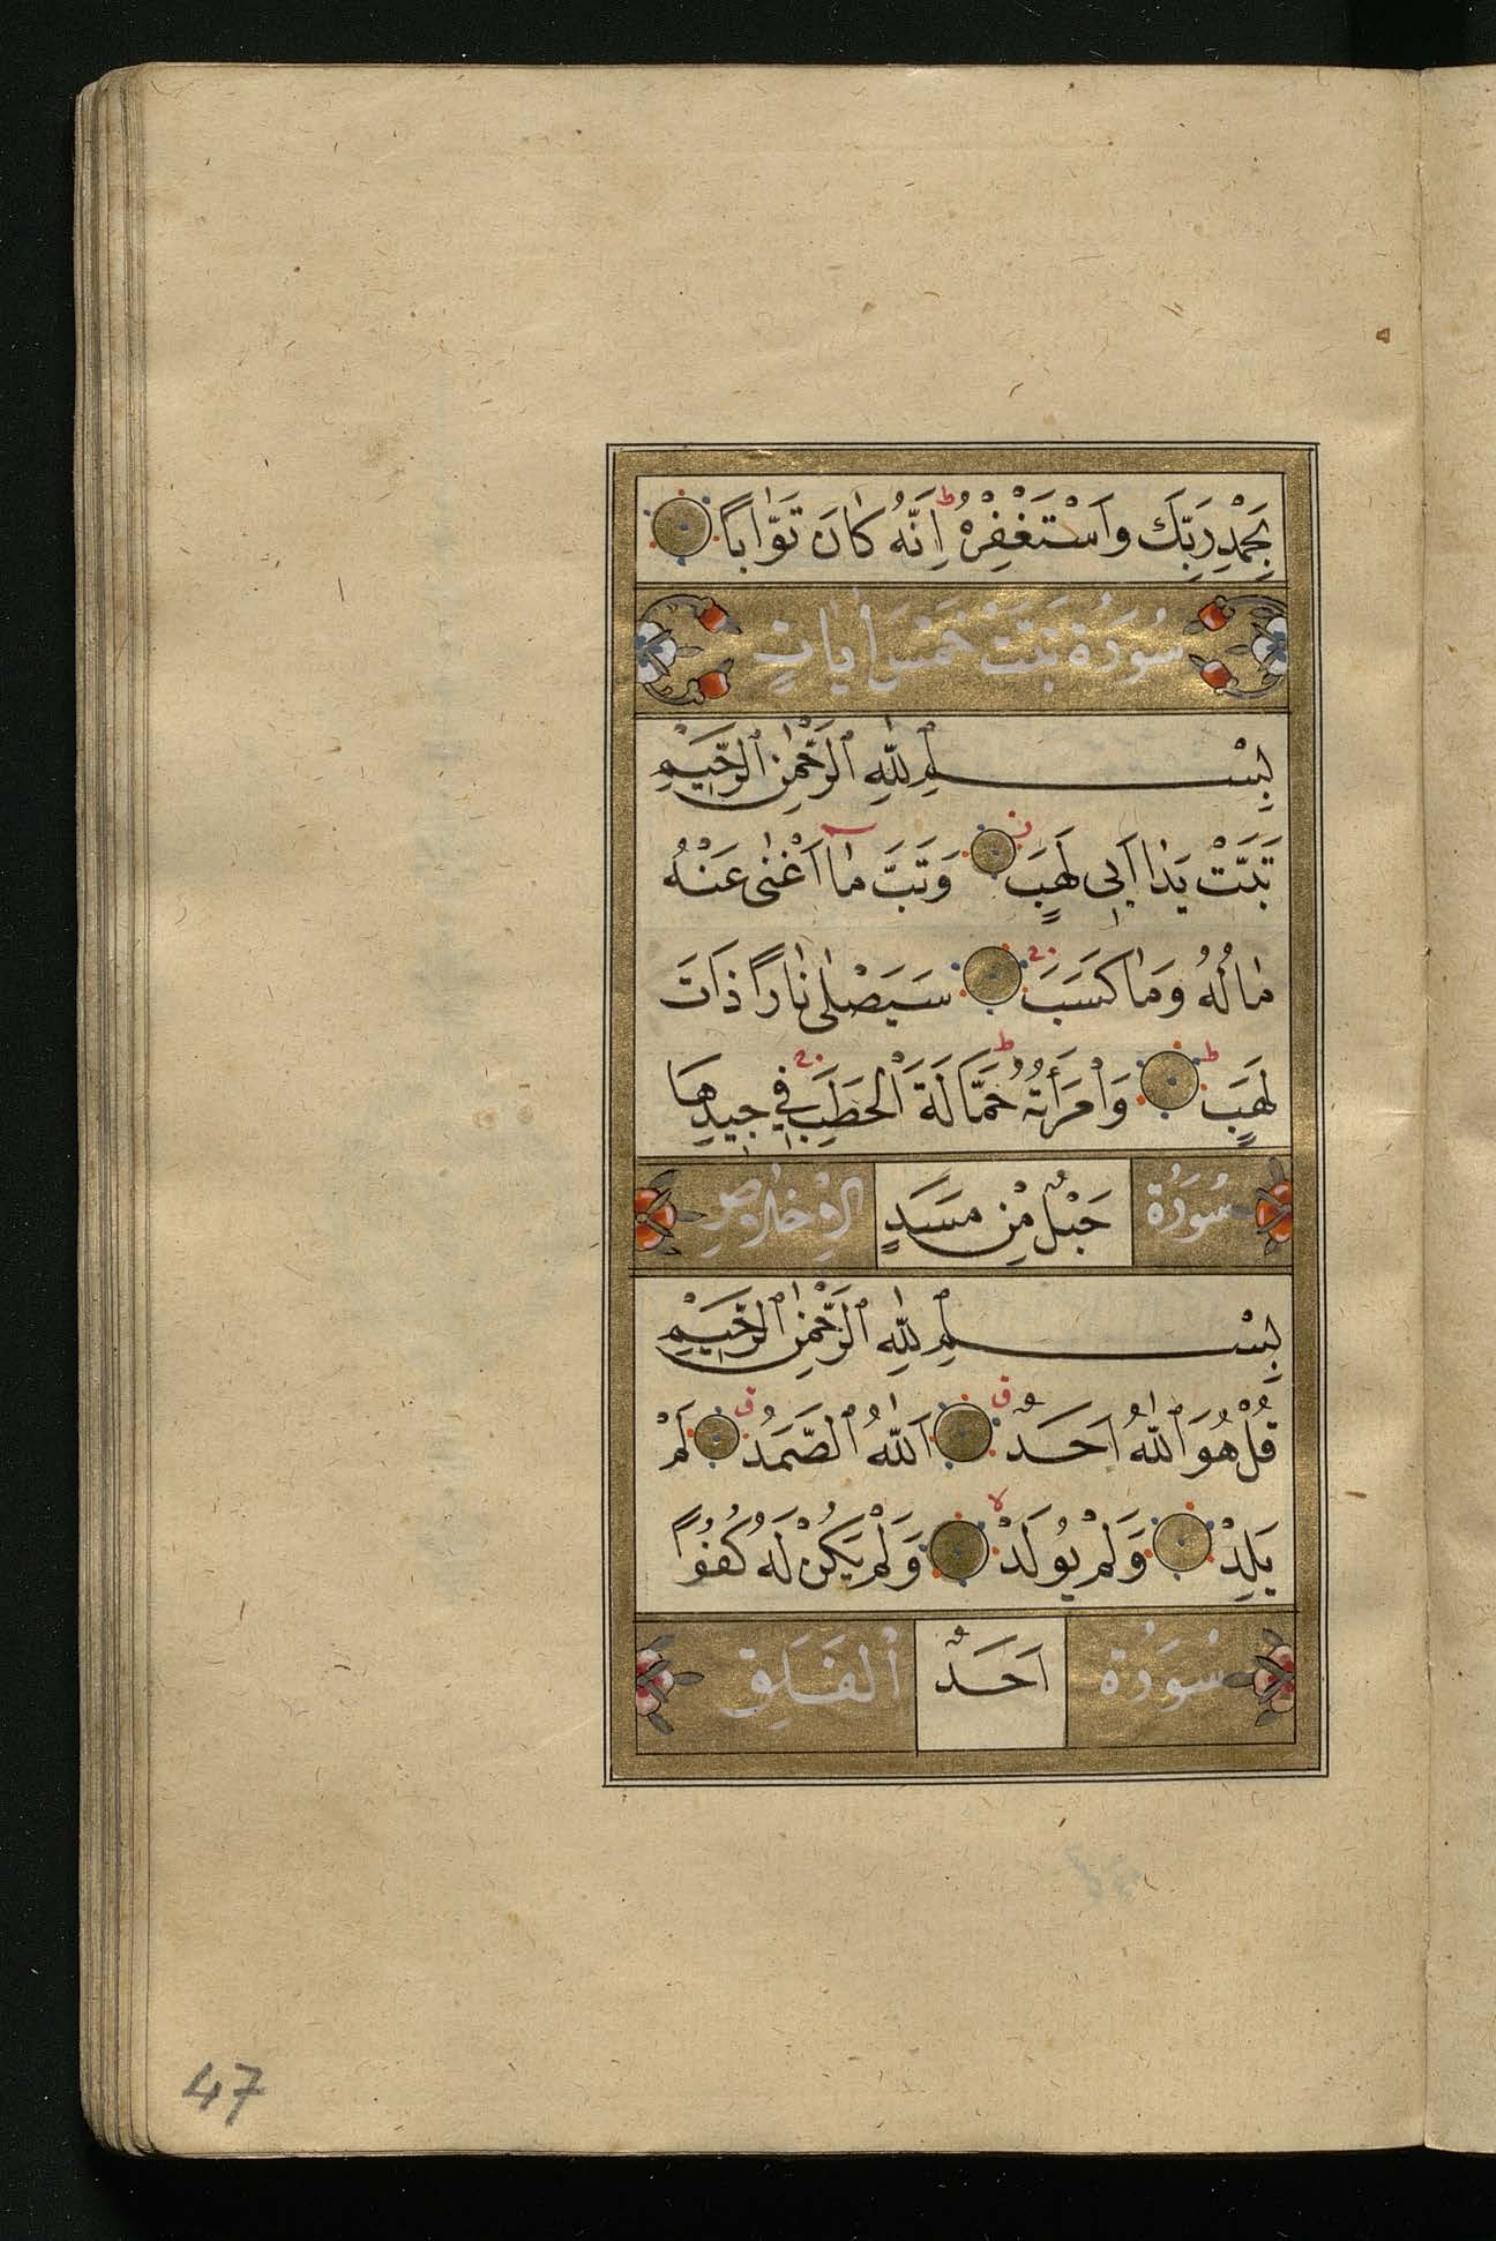 بِحَمْدِ رَبِّكَ وَاَسْتَغْفِرْهُ ط اِنَّهُ كَانَ تَوَّاباً
سُورَةُ تَبَّتْ خَمْسَ اٰيَاتٍ
بِسْمِ اللّٰهِ الرَّحْمٰنِ الرَّحِيْمِ
تَبَّتْ يَدَا اَبِى لَهَبٍ وَتَبَّ مَا اَغْنٰى عَنْهُ
مَالُهُ وَمَا كَسَبَ سَيَصْلٰى نَاراً ذَاتَ
لَهَبٍ ط وَامْرَأَتُهُ ط حَمَّالَةَ الْحَطَبِ فِي جِيدِهَا
سُورَةُ حَبْلٌ مِنْ مَسَدٍ الْاِخْلَاصِ
بِسْمِ اللّٰهِ الرَّحْمٰنِ الرَّحِيْمِ
قُلْ هُوَ اللّٰهُ اَحَدٌ ق اَللّٰهُ الصَّمَدُ ق لَمْ
يَلِدْ وَلَمْ يُولَدْ لا وَلَمْ يَكُنْ لَهُ كُفُوًا
سُورَةُ اَحَدٌ الْفَلَقِ
47